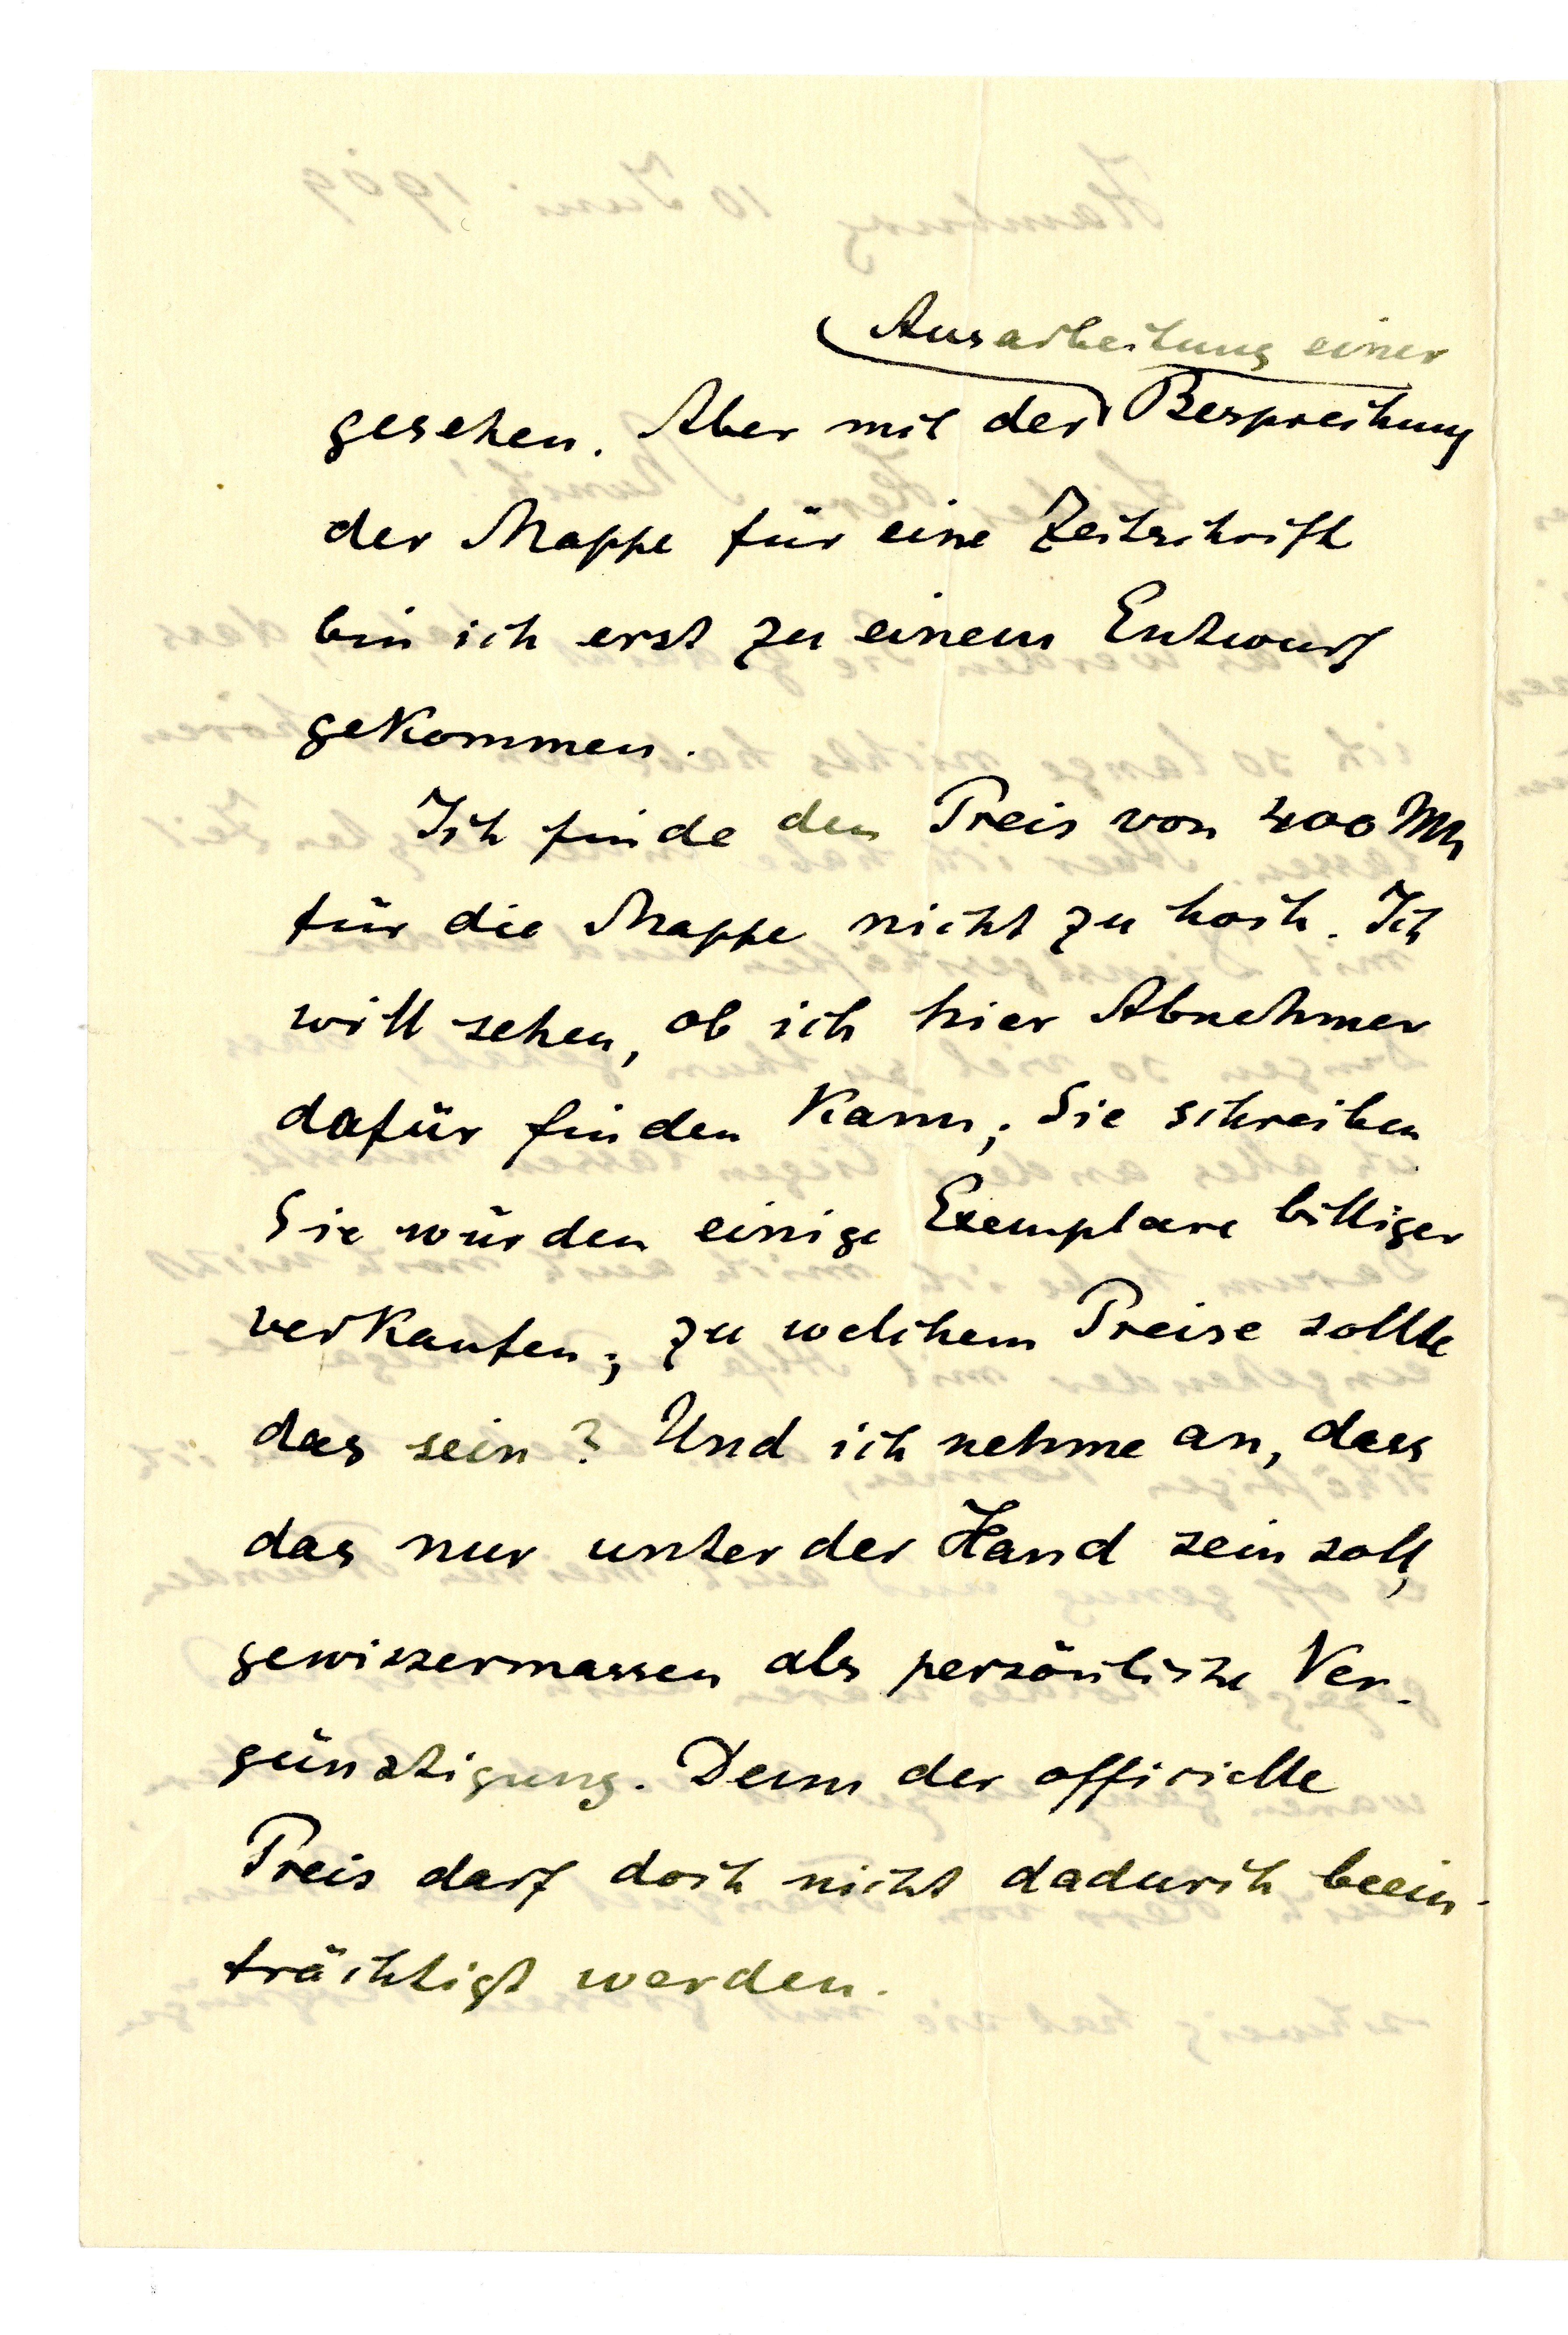 Ausarbeitung einer
gesehen. Aber mit der Besprechung
der Mappe für eine Zeitschrift
bin ich erst zu einem Entwurf
gekommen.
Ich finde den Preis von 400 Mk
für die Mappe nicht zu hoch. Ich
will sehen, ob ich hier Abnehmer
dafür finden kann; Sie schreiben
Sie würden einige Exemplare billiger
verkaufen; zu welchem Preise sollte
das sein? Und ich nehme an, dass
das nur unter der Hand sein soll,
gewissermassen als persönliche Ver-
günstigung. Denn der officielle
Preis darf doch nicht dadurch beein-
trächtigt werden.